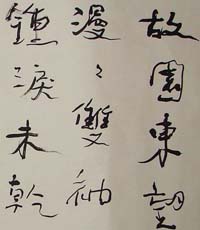 故園東望
漫々雙袖
鍾淚未乾